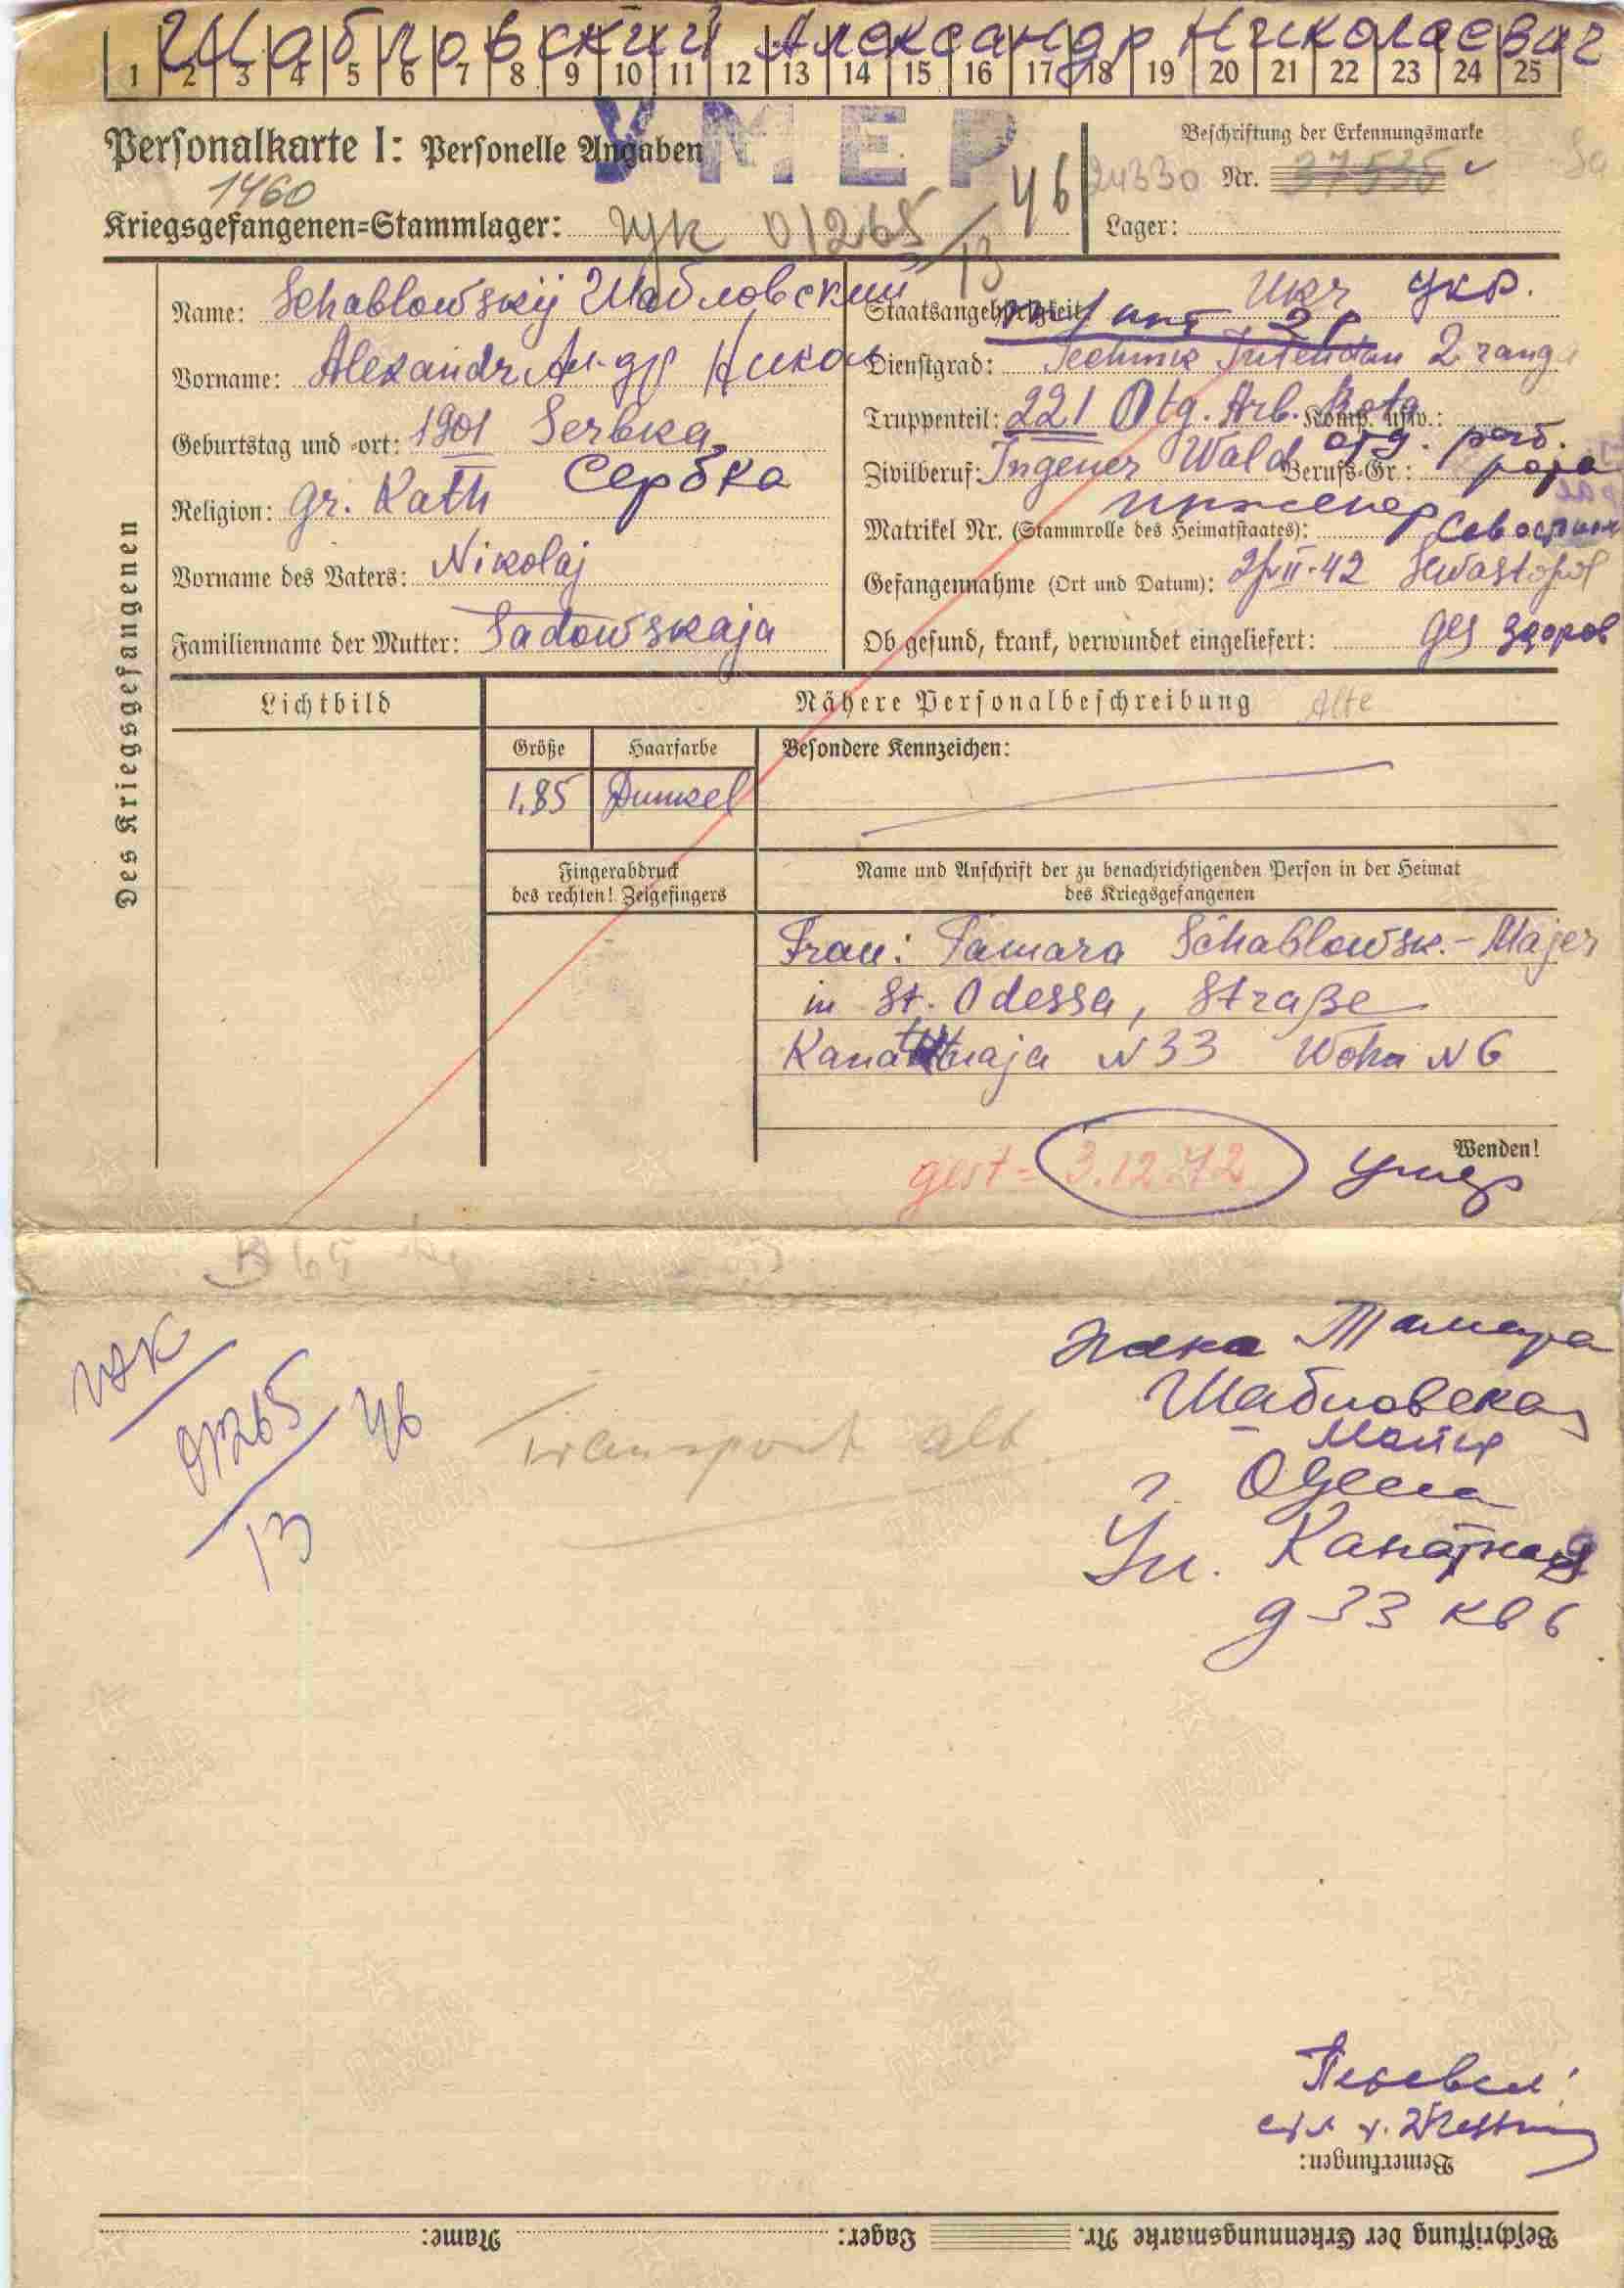 Шабловский Александр Николаевич
1 2 3 4 5 6 7 8 9 10 11 12 13 14 15 16 17 18 19 20 21 22 23 24 25
УМЕР
Personalkarte I: Personelle Angaben
Beschriftung der Erkennungsmarke
24330 Nr. 37535
1460
Kriegsgefangenen=Stammlager: 01265/13 46
Lager:
Des Kriegsgefangenen
Name: Schablowskij Шабловский
Vorname: Alexandr Ал-др Никол
Geburtstag und -ort: 1901 Serbka
Сербка
Religion: gr. Kath
Vorname des Vaters: Nikolaj
Familienname der Mutter: Sadowskaja
Staatsangehörigkeit: Ukr Укр.
Dienstgrad: Technik Intendan 2 ranga
Truppenteil: 221 Otg. Arb. Rota Komp. usw.:
отд. раб. рота
Zivilberuf: Ingener Wald Berufs-Gr.:
инженер
Matrikel Nr. (Stammrolle des Heimatstaates):
Севастополь
Gefangennahme (Ort und Datum): 42 Sewastopol
Ob gesund, krank, verwundet eingeliefert: Ges здоров
Lichtbild
Nähere Personalbeschreibung Alte
Größe
Haarfarbe
Besondere Kennzeichen:
1,85
Dunkel
Fingerabdruck
des rechten! Zeigefingers
Name und Anschrift der zu benachrichtigenden Person in der Heimat
des Kriegsgefangenen
Frau: Tamara Schablowsk.-Majer
in St. Odessa, Straße
Kanatnaja N 33 Wohn N 6
Wenden!
gest = 3.12.42 умер
Жена Тамара
Шабловская
- Майер
г. Одесса
Ул. Канатная
д 33 кв 6
01265
13
46
Transport
Перевел:
Bemerkungen:
Beschriftung der Erkennungsmarke Nr. Lager: Name: